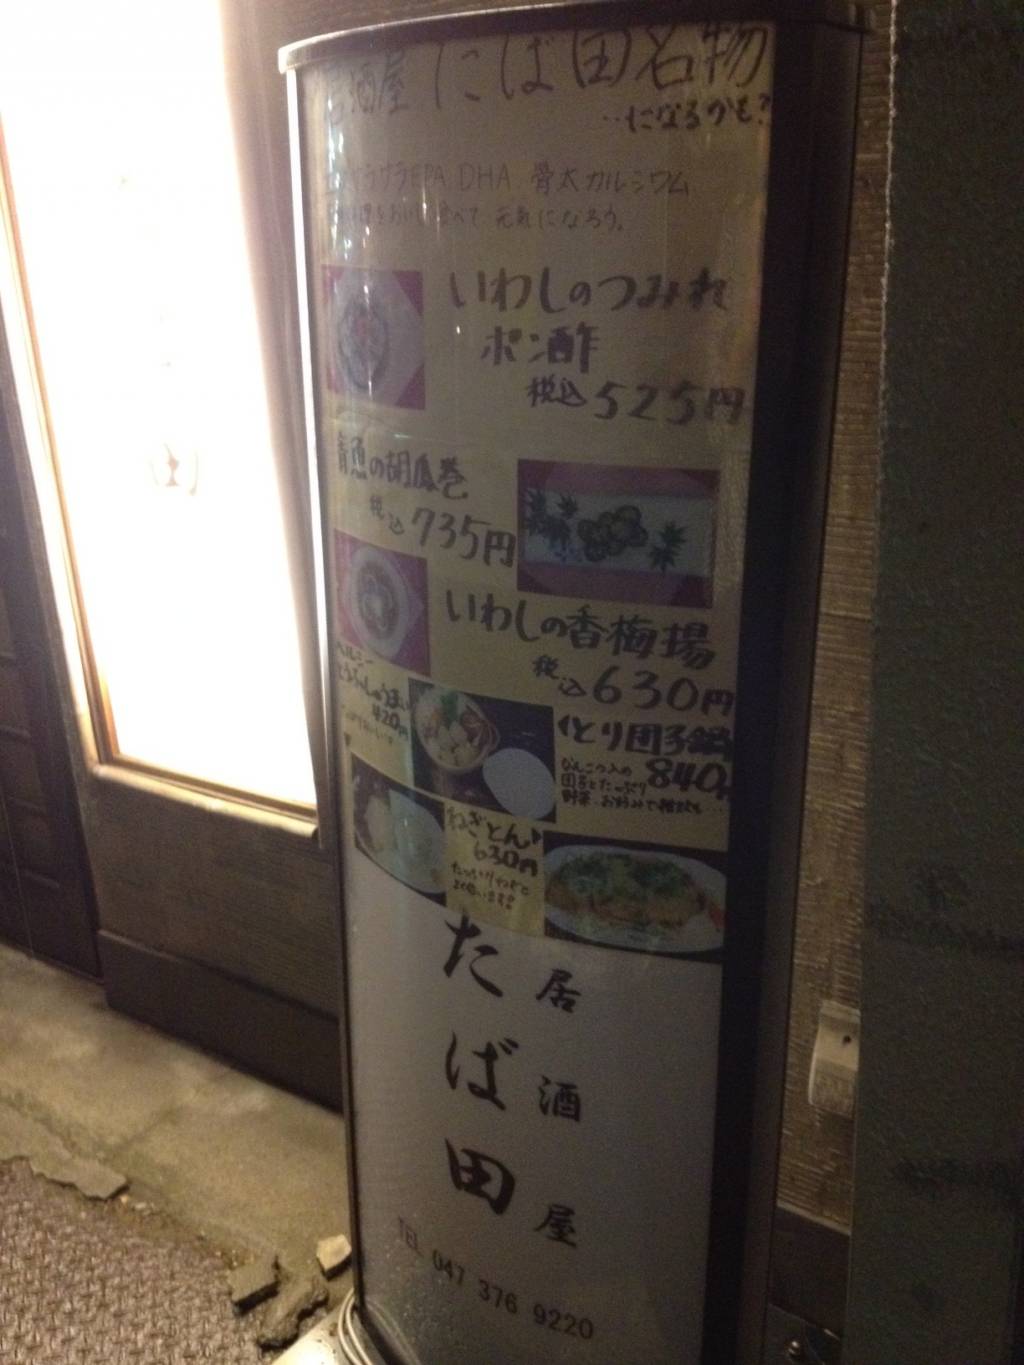 居酒屋 たば田名物
…になるかも?
サラサラEPA DHA 骨太カルシウム
食べて 元気になろう。
いわしのつみれ
ポン酢
税込525円
青魚の胡瓜巻
税込735円
いわしの香梅揚
税込630円
ヘルシー
とうふしゅうまい
420円
とり団子鍋
840円
なんこつ入の
団子とたっぷり
野菜、お好みで雑炊も…
ねぎとん
630円
たっぷりねぎと
たば田
居酒屋
TEL 047 376 9220